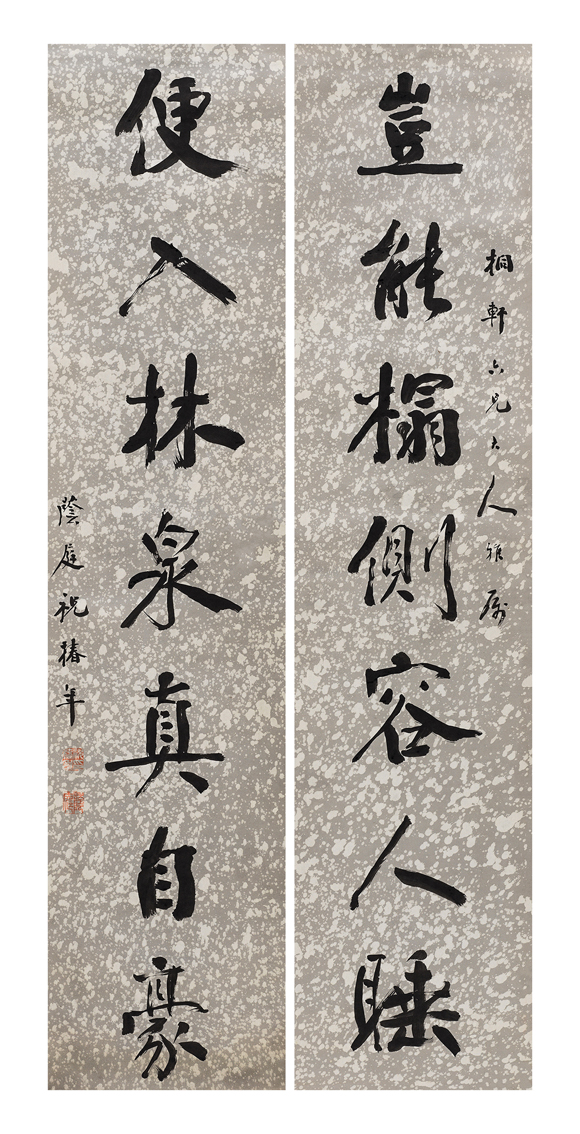 桐軒六兄大人雅属
豈能榻側容人睡
便入林泉真自豪
蔭庭祝椿年